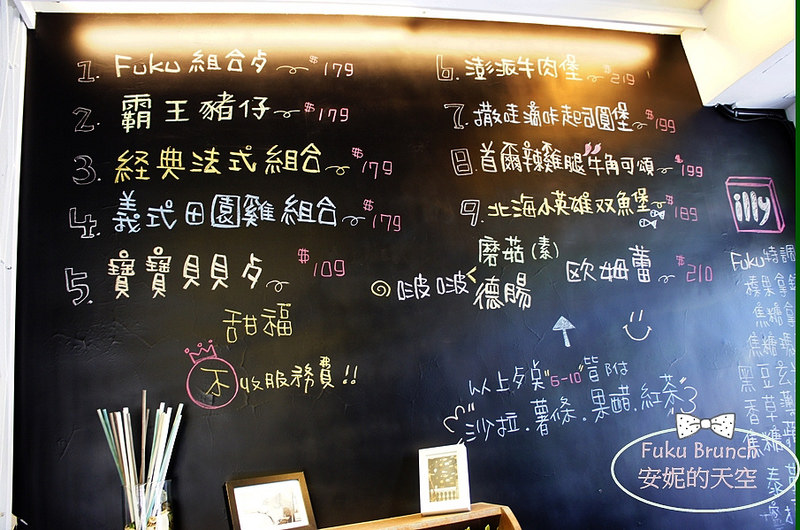 1. Fuku 組合歺~ $179
2. 霸王豬仔~ $179
3. 経典法式組合~ $179
4. 義式田園雞組合~ $179
5. 寶寶貝貝歺~ $109
甜福
不收服務費!!
6. 澎派牛肉堡~ $219
7. 撒哇滴咔起司圓堡~ $199
8. 首爾辣雞腿牛角可頌~ $199
9. 北海小英雄双魚堡~ $189
啵啵<
蘑菇(素)
德腸
欧姆蕾~ $210
以上歺點"6-10"皆附
沙拉.薯條.果醋.紅茶
illy
Fuku特調
榛果拿鉄
焦糖拿
焦糖瑪
黑豆玄
香草
焦糖
Fuku Brunch
安妮的天空